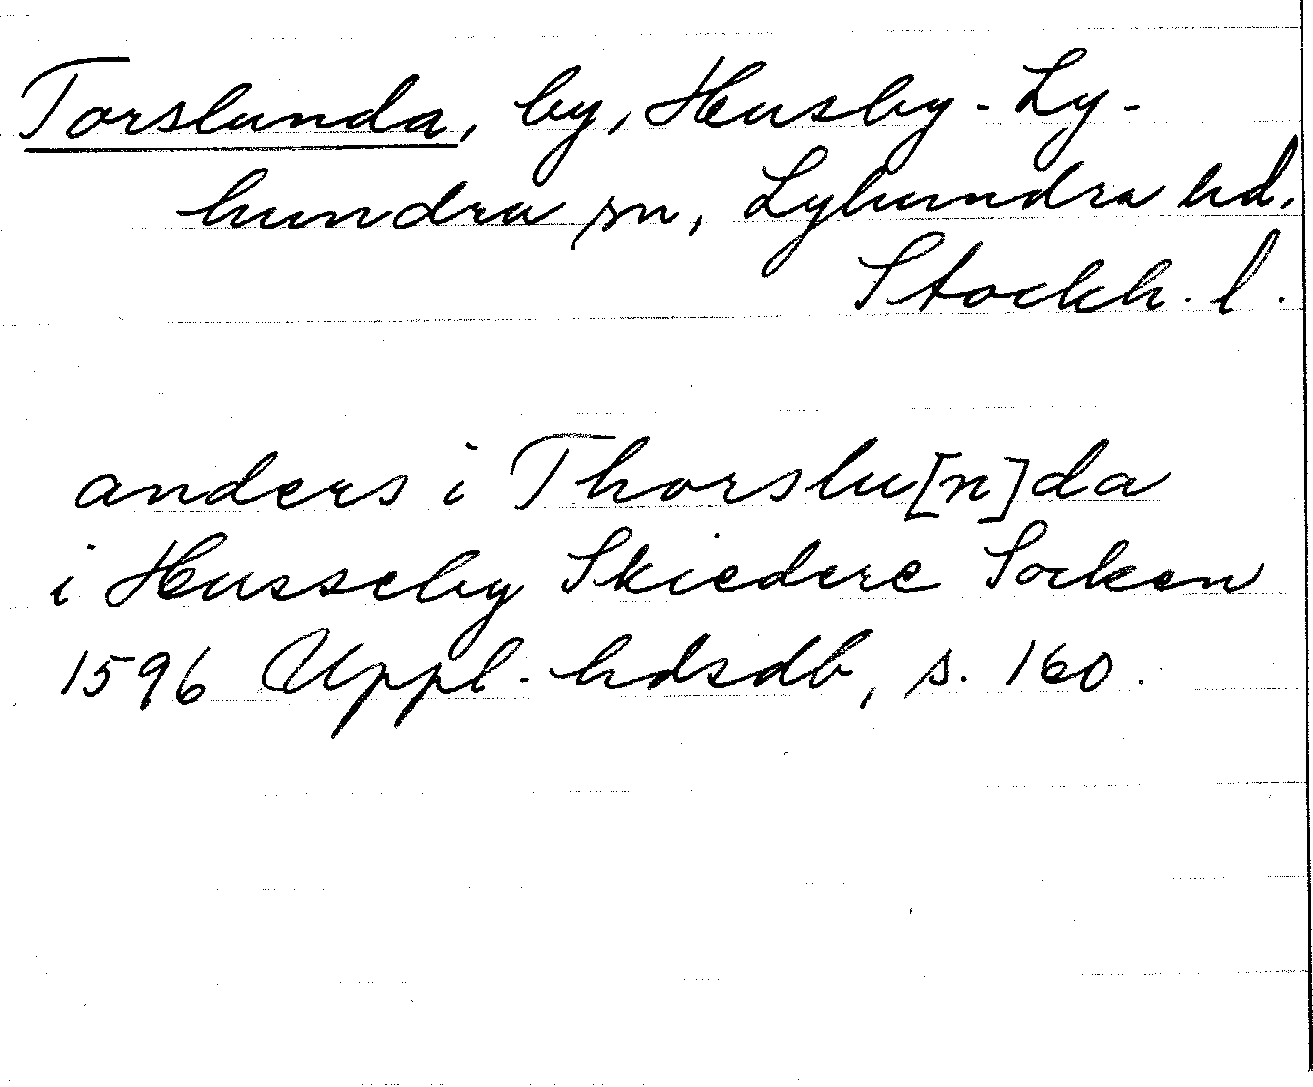 Torslunda, by, Husby-Ly-
hundra sn, Lyhundra hd.
Stockh. l.
anders i Thorslu[n]da
i Husseby Skiedere Socken
1596 Uppl. hdsdb, s. 160.